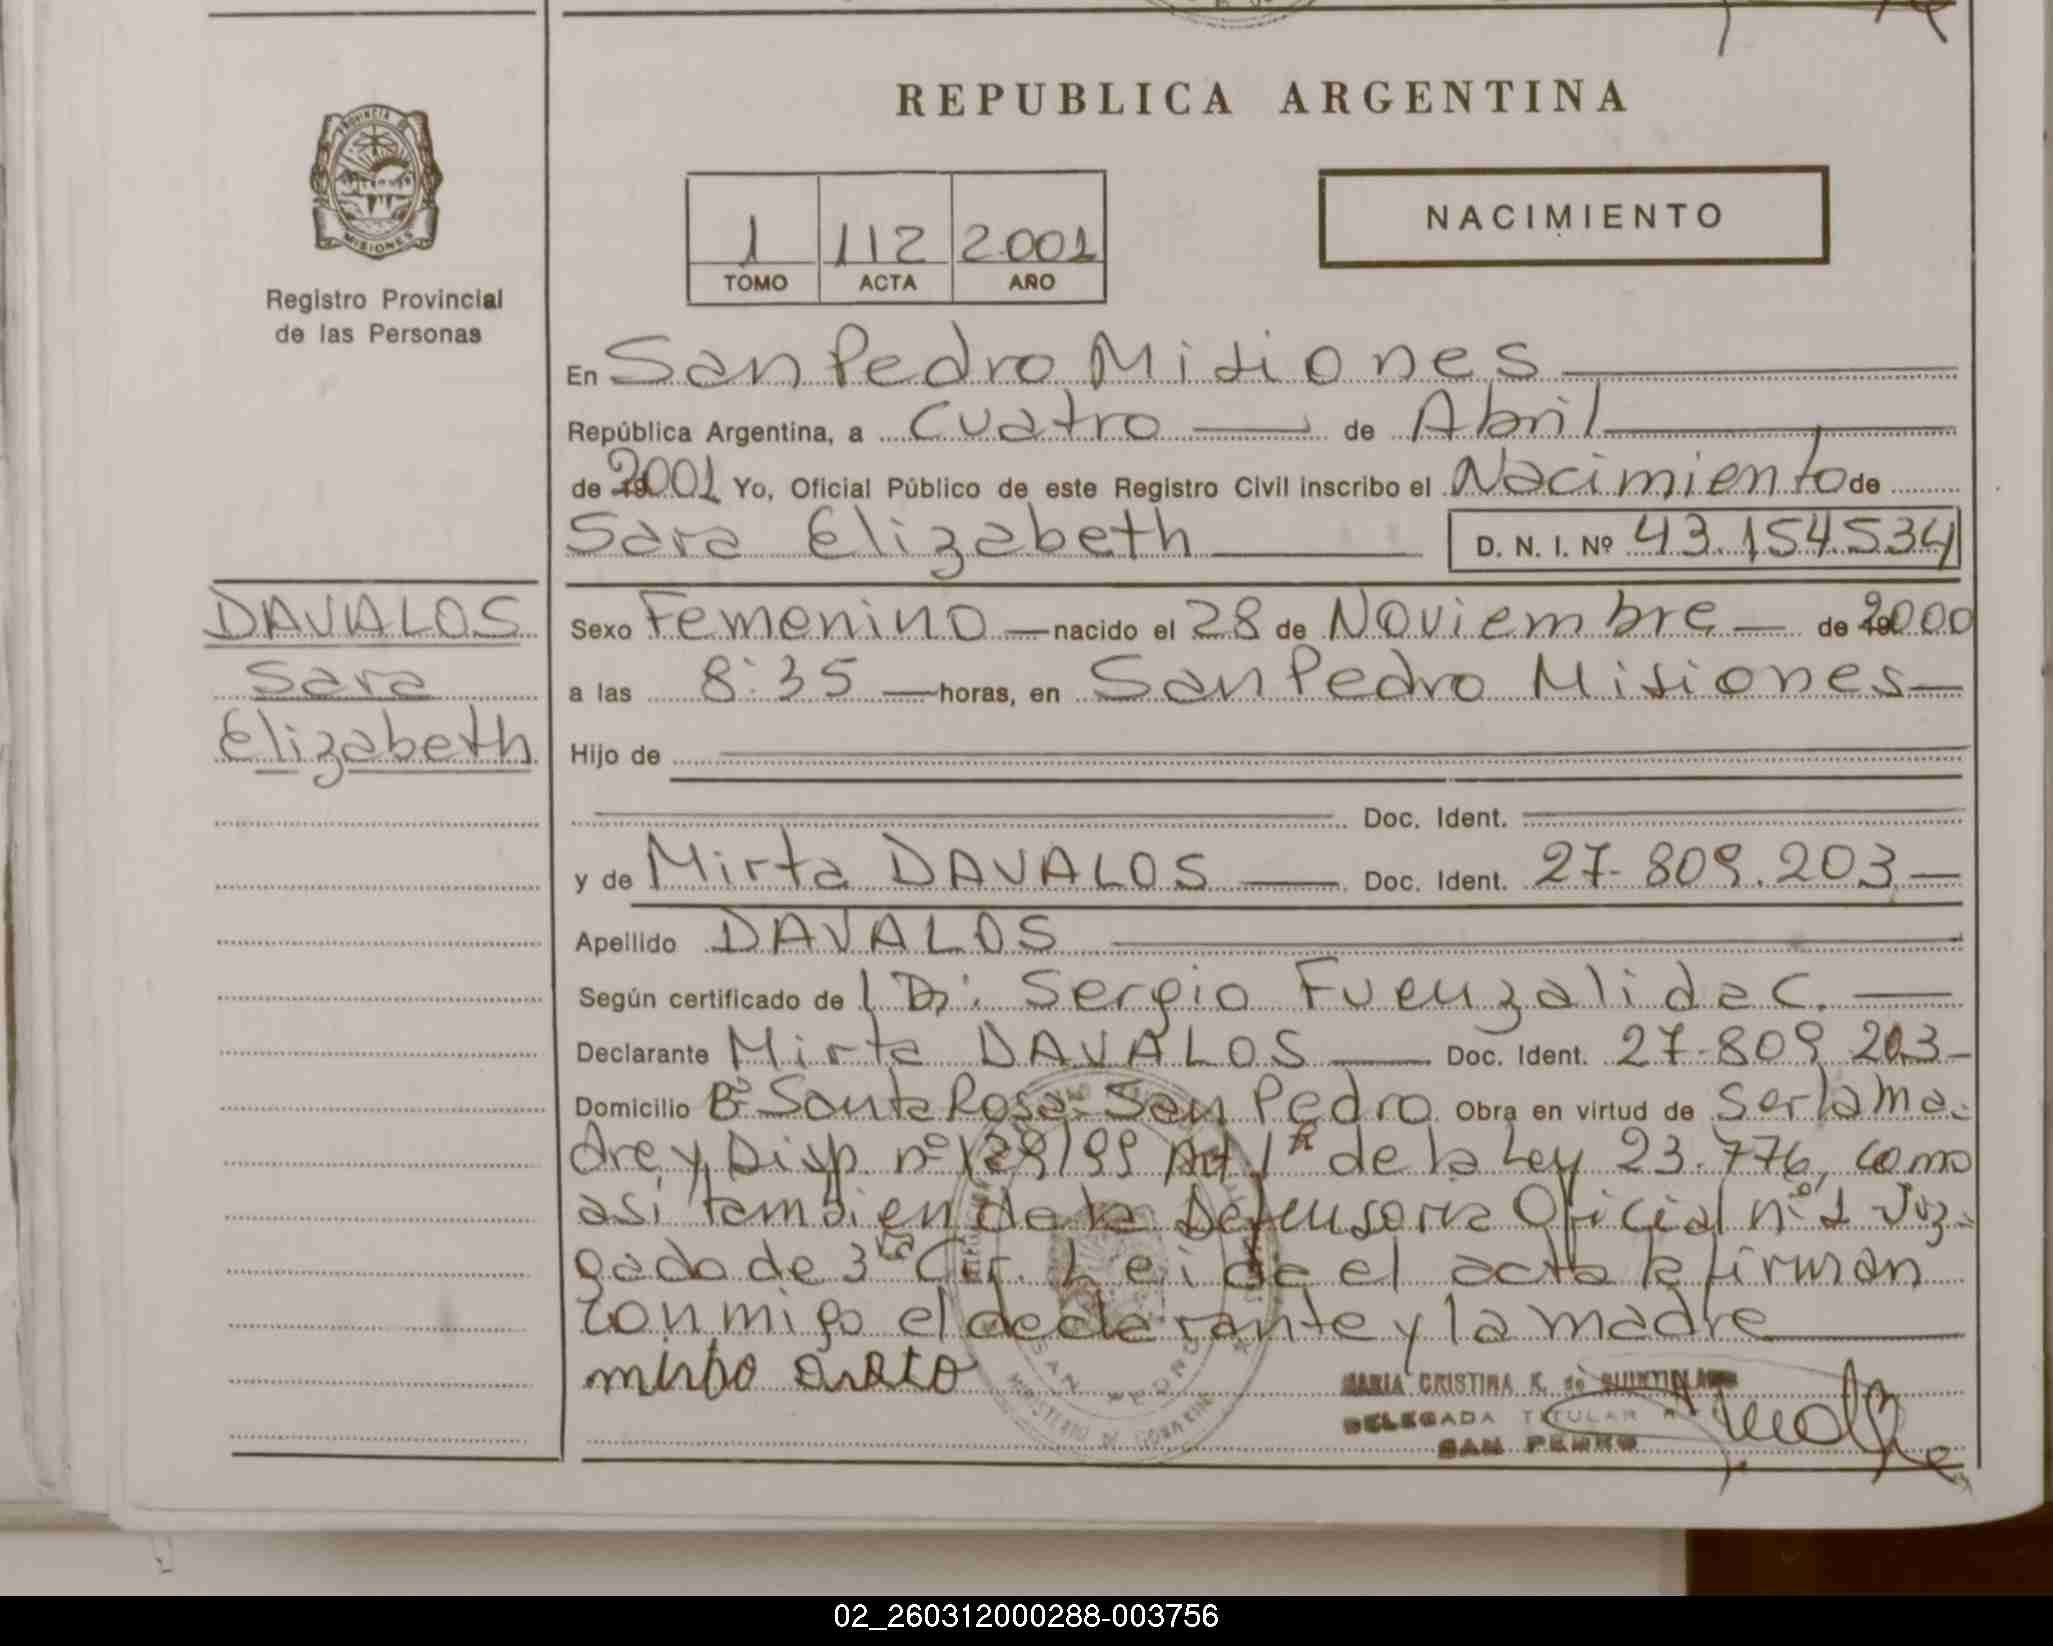 REPUBLICA ARGENTINA
PROVINCIA DE
MISIONES
Registro Provincial
de las Personas
1 112 2001
TOMO ACTA AÑO
NACIMIENTO
En San Pedro Misiones
República Argentina, a Cuatro de Abril
de 2001 Yo, Oficial Público de este Registro Civil inscribo el Nacimiento de
Sara Elizabeth D. N. I. Nº 43.154.534
DAVALOS
Sara
Elizabeth
Sexo Femenino nacido el 28 de Noviembre de 2000
a las 8:35 horas, en San Pedro Misiones
Hijo de
Doc. Ident.
y de Mirta DAVALOS Doc. Ident. 27-809.203
Apellido DAVALOS
Según certificado de Dr: Sergio Fuenzalida C.
Declarante Mirta DAVALOS Doc. Ident. 27-809 203
Domicilio Bº Santa Rosa San Pedro Obra en virtud de Ser la ma-
dre y Disp. nº 129/99 Art 1º de la Ley 23.776, como
asi tambien de la Defensoria Oficial nº 1 Juz-
gado de 3ra Cir. Leida el acta la firman
conmigo el declarante y la madre
MARIA CRISTINA K. de
DELEGADA TITULAR
SAN PEDRO
SAN PEDRO
MINISTERIO DE GOBIERNO
02_260312000288-003756